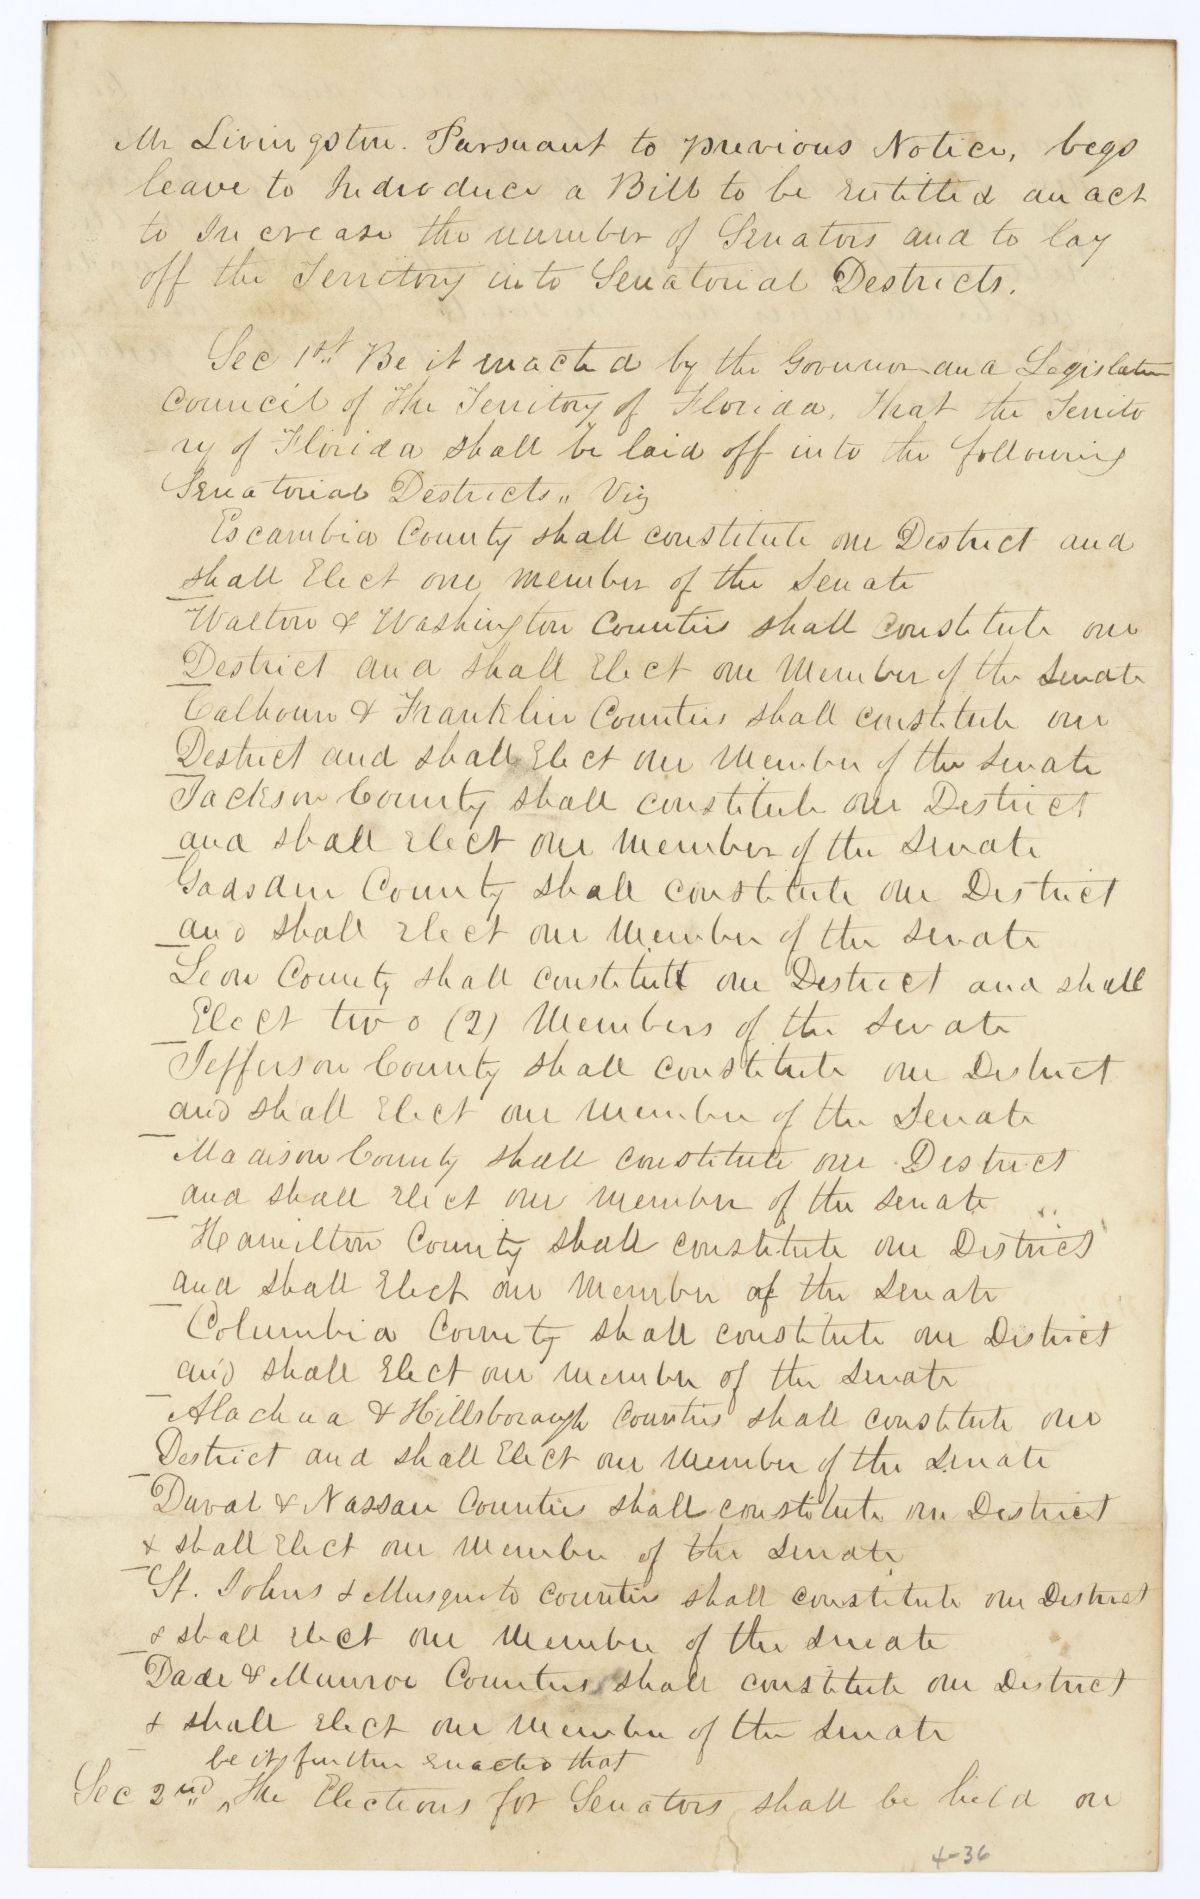 Mr Livingston. Pursuant to previous Notice, begs
leave to Indroduce a Bill to be Entitled an act
to Increase the number of Senators and to lay
off the Territory into Senatorial Destricts.
Sec 1st Be it enacted by the Governor and Legislative
Council of The Territory of Florida, That the Territo
ry of Florida shall be laid off into the following
Senatorial Destricts,, Viz
Escambia County shall constitute one Destrict and
shall Elect one member of the Senate
Walton & Washington Counties shall constitute one
Destrict and shall Elect one Member of the Senate
Calhoun & Franklin Counties shall constitute one
Destrict and shall Elect one Member of the Senate
Jackson County shall constitute one Destrict
and shall Elect one Member of the Senate
Gadsden County shall constitute one Destrict
and shall Elect one Member of the Senate
Leon County shall constitute one Destrict and shall
Elect two (2) Members of the Senate
Jefferson County shall constitute one Destrict
and shall Elect one Member of the Senate
Madison County shall constitute one Destrict
and shall Elect one Member of the Senate
Hamilton County shall constitute one District
and shall Elect one Member of the Senate
Columbia County shall constitute one District
and shall Elect one Member of the Senate
Alachua & Hillsborough Counties shall constitute one
Destrict and shall Elect one Member of the Senate
Duval & Nassau Counties shall constitute one Destrict
& shall Elect one Member of the Senate
St. Johns & Musquito counties shall constitute one Destrict
& shall Elect one Member of the Senate
Dade & Munroe Counties shall constitute one Destrict
& shall Elect one Member of the Senate
be it further Enacted that
Sec 2nd ^ The Elections for Senators shall be held on
4-36